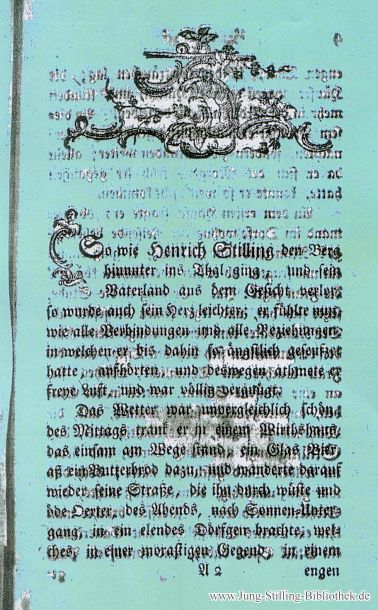 So wie Henrich Stilling den Berg
hinunter ins Thal ging, und sein
Vaterland aus dem Gesicht verlor,
so wurde auch sein Herz leichter; er fühlte nun,
wie alle Verbindungen und alle Beziehungen,
in welchen er bis dahin so ängstlich geseufzt
hatte, aufhörten, und deswegen athmete er
freye Luft, und war völlig vergnügt.
Das Wetter war unvergleichlich schön;
des Mittags trank er in einem Wirthshaus,
das einsam am Wege stand, ein Glas Bier,
aß ein Butterbrod dazu, und wanderte darauf
wieder seine Straße, die ihn durch wüste und
öde Oerter, des Abends, nach Sonnen-Unter-
gang, in ein elendes Dörfgen brachte, wel-
ches in einer morastigen Gegend, in einem
A 2 engen
www.Jung-Stilling-Bibliothek.de